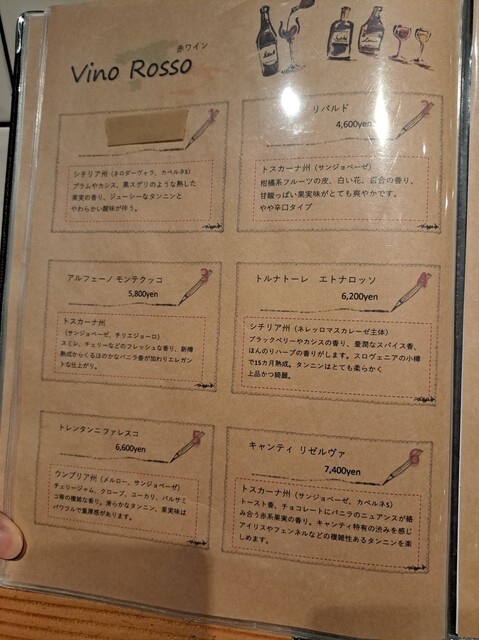 赤ワイン
Vino Rosso
シチリア州 (ネロダーヴォラ、カベルネS)
プラムやカシス、黒スグリのような熟した
果実の香り、ジューシーなタンニンと
やわらかい酸味が伴う。
リパルド
4,600yen
2
トスカーナ州 (サンジョベーゼ)
柑橘系フルーツの皮、白い花、百合の香り、
甘酸っぱい果実味がとても爽やかです。
やや辛口タイプ
アルフェーノ モンテクッコ
5,800yen
3
トスカーナ州
(サンジョベーゼ、チリエジョーロ)
スミレ、チェリーなどのフレッシュな香り、新樽
熟成からくるほのかなバニラ香が加わりエレガン
トな仕上がり。
トルナトーレ エトナロッソ
6,200yen
4
シチリア州 (ネレッロマスカレーゼ主体)
ブラックベリーやカシスの香り、豊潤なスパイス香、
ほんのりハーブの香りがします。スロヴェニアの小樽
で15カ月熟成。タンニンはとても柔らかく
上品かつ綺麗。
トレンタンニ ファレスコ
6,600yen
5
ウンブリア州 (メルロー、サンジョベーゼ)
チェリージャム、クローブ、ユーカリ、バルサミ
コ等の複雑な香り。滑らかなタンニン、果実味は
パワフルで重厚感があります。
キャンティ リゼルヴァ
7,400yen
6
トスカーナ州 (サンジョベーゼ、カベルネS)
トースト香、チョコレートにバニラのニュアンスが絡
み合う赤系果実の香り。キャンティ特有の渋みを感じ
アイリスやフェンネルなどの複雑性あるタンニンを楽
しめます。